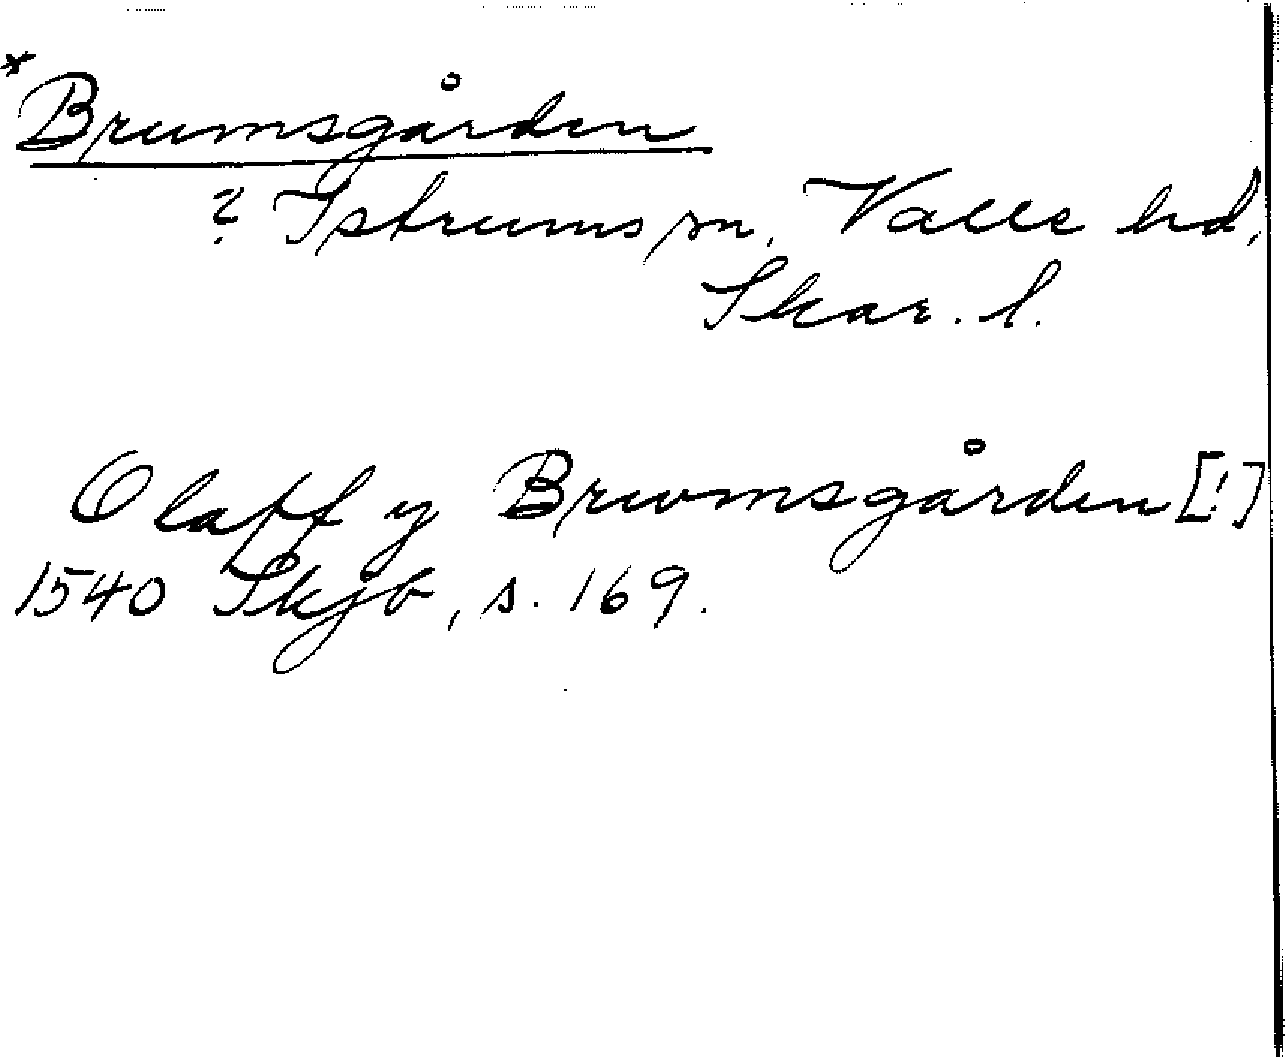 *
Brumsgården
? Istrums sn, Valle hd,
Skar. l.
Olaff y Brwmsgården [!]
1540 Skjb, s. 169.